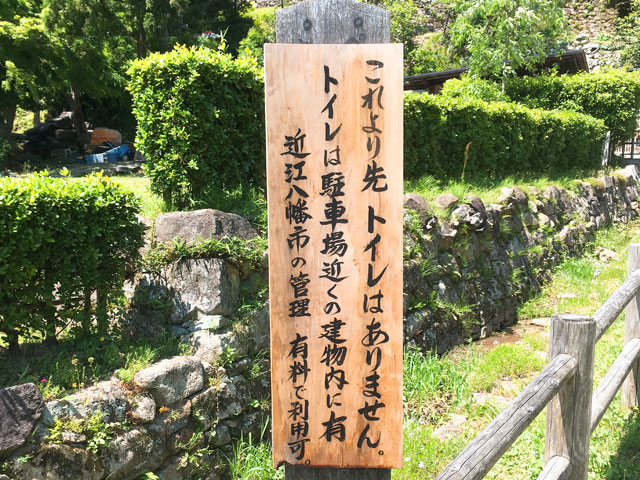 これより先 トイレはありません。
トイレは駐車場近くの建物内に有
近江八幡市の管理 有料で利用可。